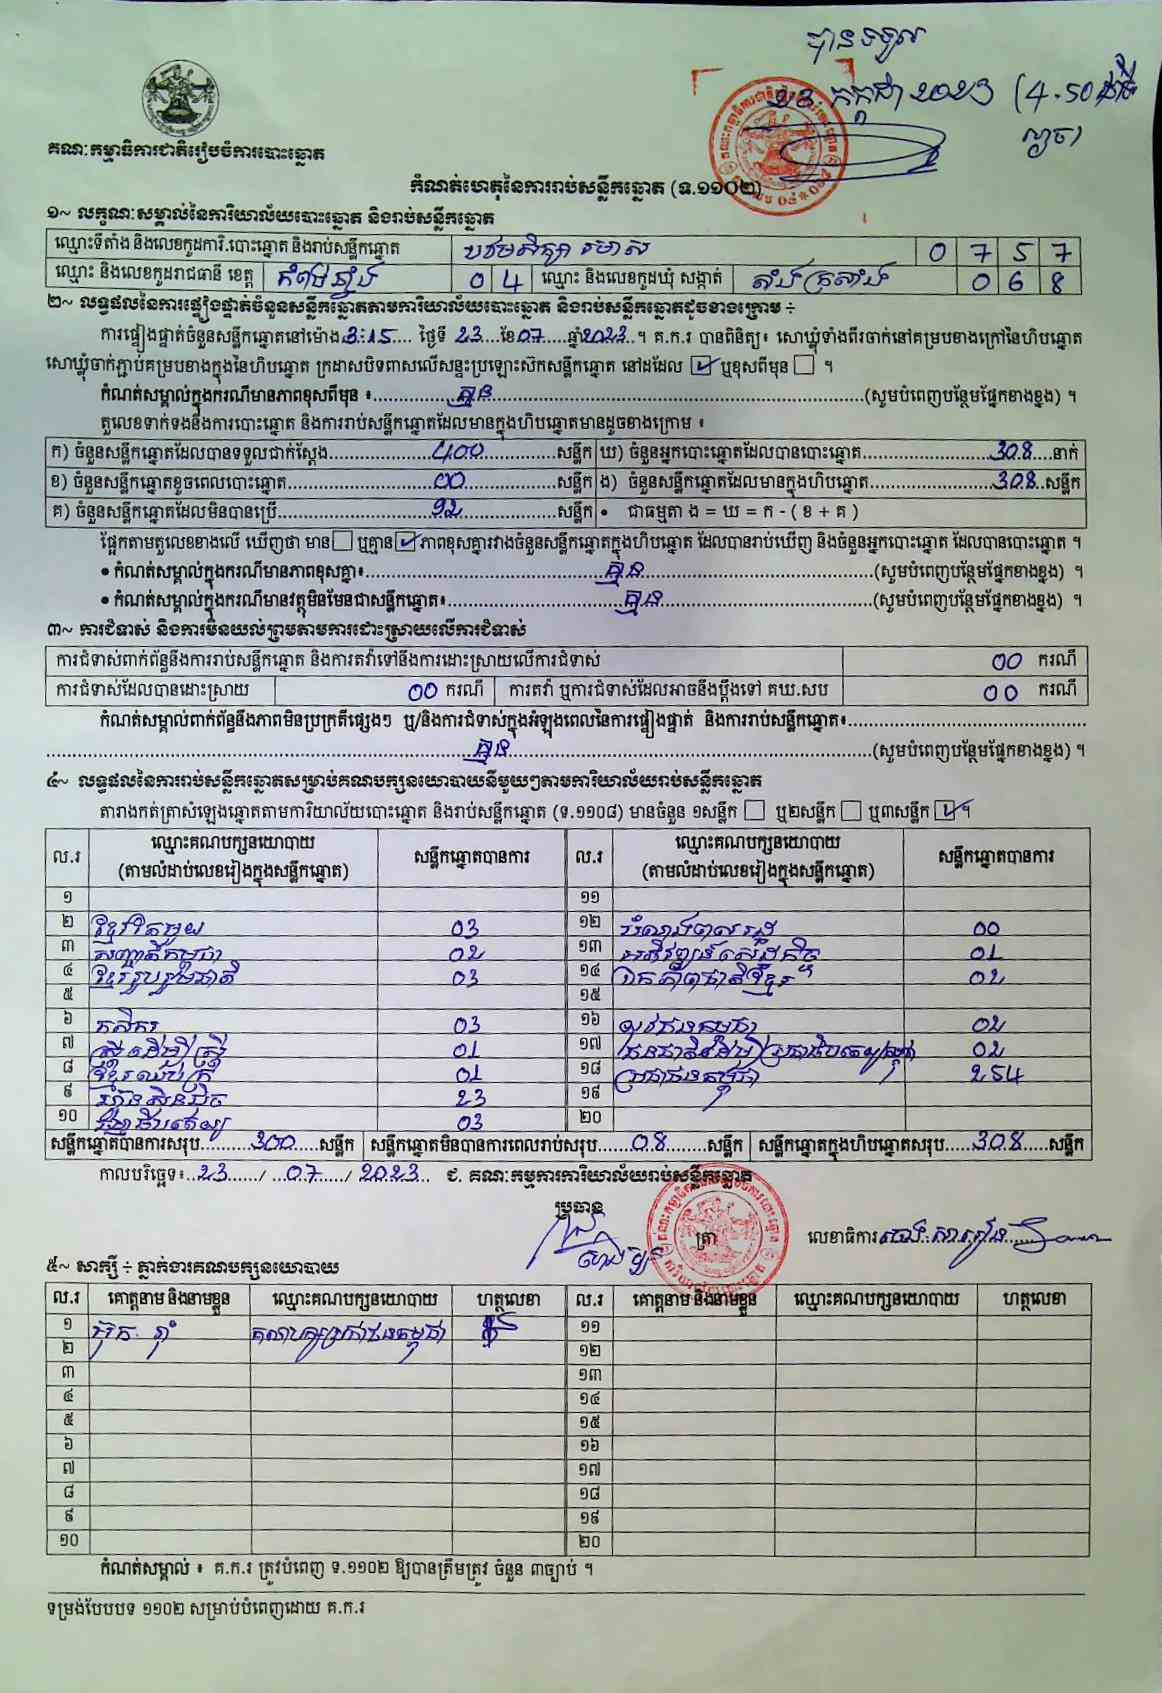 បានទទួល
23 កក្កដា 2023 (4.50 នាទី
ល្ងាច)
គណៈកម្មាធិការជាតិរៀបចំការបោះឆ្នោត
កំណត់ហេតុនៃការរាប់សន្លឹកឆ្នោត (ទ.១១០២)
១~ លក្ខណៈសម្គាល់នៃការិយាល័យបោះឆ្នោត និងរាប់សន្លឹកឆ្នោត
ឈ្មោះទីតាំង និងលេខកូដការិ.បោះឆ្នោត និងរាប់សន្លឹកឆ្នោត បឋមសិក្សា រមាស 0 7 5 7
ឈ្មោះ និងលេខកូដរាជធានី ខេត្ត កំពង់ឆ្នាំង 0 4 ឈ្មោះ និងលេខកូដឃុំ សង្កាត់ តាំងក្រសាំង 0 6 8
២~ លទ្ធផលនៃការផ្ទៀងផ្ទាត់ចំនួនសន្លឹកឆ្នោតតាមការិយាល័យបោះឆ្នោត និងរាប់សន្លឹកឆ្នោតដូចខាងក្រោម ÷
ការផ្ទៀងផ្ទាត់ចំនួនសន្លឹកឆ្នោតនៅម៉ោង 3:15 ថ្ងៃទី 23 ខែ 07 ឆ្នាំ 2023 ។ គ.ក.រ បានពិនិត្យ៖ សោឃ្លុំទាំងពីរចាក់នៅគម្របខាងក្រៅនៃហិបឆ្នោត
សោឃ្លុំចាក់ភ្ជាប់គម្របខាងក្នុងនៃហិបឆ្នោត ក្រដាសបិទពាសលើសន្ទះប្រឡោះស៊កសន្លឹកឆ្នោត នៅដដែល ☑ ឬខុសពីមុន ☐ ។
កំណត់សម្គាល់ក្នុងករណីមានភាពខុសពីមុន ៖ គ្មាន (សូមបំពេញបន្ថែមផ្នែកខាងខ្នង) ។
តួលេខទាក់ទងនឹងការបោះឆ្នោត និងការរាប់សន្លឹកឆ្នោតដែលមានក្នុងហិបឆ្នោតមានដូចខាងក្រោម ៖
ក) ចំនួនសន្លឹកឆ្នោតដែលបានទទួលជាក់ស្តែង 400 សន្លឹក ឃ) ចំនួនអ្នកបោះឆ្នោតដែលបានបោះឆ្នោត 308 នាក់
ខ) ចំនួនសន្លឹកឆ្នោតខូចពេលបោះឆ្នោត 00 សន្លឹក ង) ចំនួនសន្លឹកឆ្នោតដែលមានក្នុងហិបឆ្នោត 308 សន្លឹក
គ) ចំនួនសន្លឹកឆ្នោតដែលមិនបានប្រើ 92 សន្លឹក • ជាធម្មតា ង = ឃ = ក - ( ខ + គ )
ផ្អែកតាមតួលេខខាងលើ ឃើញថា មាន ☐ ឬគ្មាន ☑ ភាពខុសគ្នារវាងចំនួនសន្លឹកឆ្នោតក្នុងហិបឆ្នោត ដែលបានរាប់ឃើញ និងចំនួនអ្នកបោះឆ្នោត ដែលបានបោះឆ្នោត ។
• កំណត់សម្គាល់ក្នុងករណីមានភាពខុសគ្នា៖ គ្មាន (សូមបំពេញបន្ថែមផ្នែកខាងខ្នង) ។
• កំណត់សម្គាល់ក្នុងករណីមានវត្ថុមិនមែនជាសន្លឹកឆ្នោត៖ គ្មាន (សូមបំពេញបន្ថែមផ្នែកខាងខ្នង) ។
៣~ ការជំទាស់ និងការមិនយល់ព្រមតាមការដោះស្រាយលើការជំទាស់
ការជំទាស់ពាក់ព័ន្ធនឹងការរាប់សន្លឹកឆ្នោត និងការតវ៉ាទៅនឹងការដោះស្រាយលើការជំទាស់ 00 ករណី
ការជំទាស់ដែលបានដោះស្រាយ 00 ករណី ការតវ៉ា ឬការជំទាស់ដែលអាចនឹងប្តឹងទៅ គឃ.សប 00 ករណី
កំណត់សម្គាល់ពាក់ព័ន្ធនឹងភាពមិនប្រក្រតីផ្សេងៗ ឬ/និងការជំទាស់ក្នុងអំឡុងពេលនៃការផ្ទៀងផ្ទាត់ និងការរាប់សន្លឹកឆ្នោត៖
គ្មាន (សូមបំពេញបន្ថែមផ្នែកខាងខ្នង) ។
៤~ លទ្ធផលនៃការរាប់សន្លឹកឆ្នោតសម្រាប់គណបក្សនយោបាយនីមួយៗតាមការិយាល័យរាប់សន្លឹកឆ្នោត
តារាងកត់ត្រាសំឡេងឆ្នោតតាមការិយាល័យបោះឆ្នោត និងរាប់សន្លឹកឆ្នោត (ទ.១១០៨) មានចំនួន ១សន្លឹក ☐ ឬ២សន្លឹក ☐ ឬ៣សន្លឹក ☑ ។
ល.រ ឈ្មោះគណបក្សនយោបាយ (តាមលំដាប់លេខរៀងក្នុងសន្លឹកឆ្នោត) សន្លឹកឆ្នោតបានការ ល.រ ឈ្មោះគណបក្សនយោបាយ (តាមលំដាប់លេខរៀងក្នុងសន្លឹកឆ្នោត) សន្លឹកឆ្នោតបានការ
១ ១១
២ ខ្មែរតែមួយ 03 ១២ សំណាងបាតរដ្ឋ 00
៣ សញ្ជាតិកម្ពុជា 02 ១៣ អភិវឌ្ឍន៍សេដ្ឋកិច្ច 01
៤ ខ្មែររួបរួមជាតិ 03 ១៤ ឯកភាពជាតិខ្មែរ 02
៥ ១៥
៦ កសិករ 03 ១៦ យុវជនកម្ពុជា 02
៧ ស្ត្រីដើម្បីស្ត្រី 01 ១៧ ជនជាតិដើមប្រជាធិបតេយ្យកម្ពុជា 02
៨ ខ្មែរឈប់ក្រ 01 ១៨ ប្រជាជនកម្ពុជា 254
៩ ហ៊្វុនស៊ិនប៉ិច 23 ១៩
១០ ឃ្មុំធិបតេយ្យ 03 ២០
សន្លឹកឆ្នោតបានការសរុប 300 សន្លឹក សន្លឹកឆ្នោតមិនបានការពេលរាប់សរុប 08 សន្លឹក សន្លឹកឆ្នោតក្នុងហិបឆ្នោតសរុប 308 សន្លឹក
កាលបរិច្ឆេទ៖ 23 / 07 / 2023 ជ. គណៈកម្មការការិយាល័យរាប់សន្លឹកឆ្នោត
ប្រធាន ត្រា លេខាធិការ
៥~ សាក្សី ÷ ភ្នាក់ងារគណបក្សនយោបាយ
ល.រ គោត្តនាម និងនាមខ្លួន ឈ្មោះគណបក្សនយោបាយ ហត្ថលេខា ល.រ គោត្តនាម និងនាមខ្លួន ឈ្មោះគណបក្សនយោបាយ ហត្ថលេខា
១ គណបក្សប្រជាជនកម្ពុជា ១១
២ ១២
៣ ១៣
៤ ១៤
៥ ១៥
៦ ១៦
៧ ១៧
៨ ១៨
៩ ១៩
១០ ២០
កំណត់សម្គាល់ ៖ គ.ក.រ ត្រូវបំពេញ ទ.១១០២ ឱ្យបានត្រឹមត្រូវ ចំនួន ៣ច្បាប់ ។
ទម្រង់បែបបទ ១១០២ សម្រាប់បំពេញដោយ គ.ក.រ